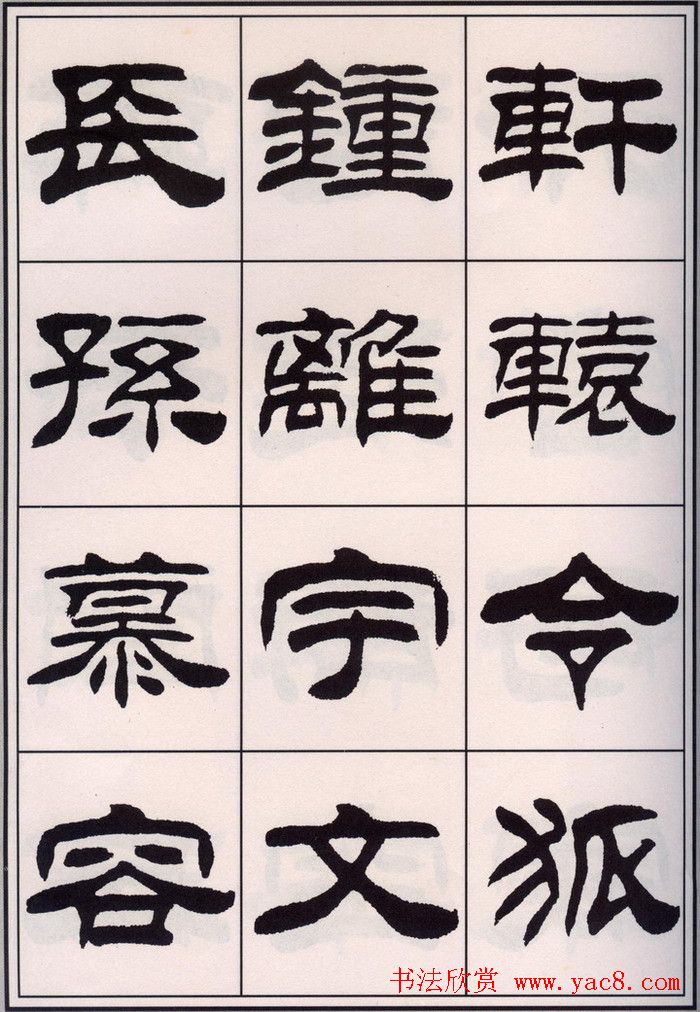 軒轅令狐
鍾離宇文
長孫慕容
书法欣赏 www.yac8.com